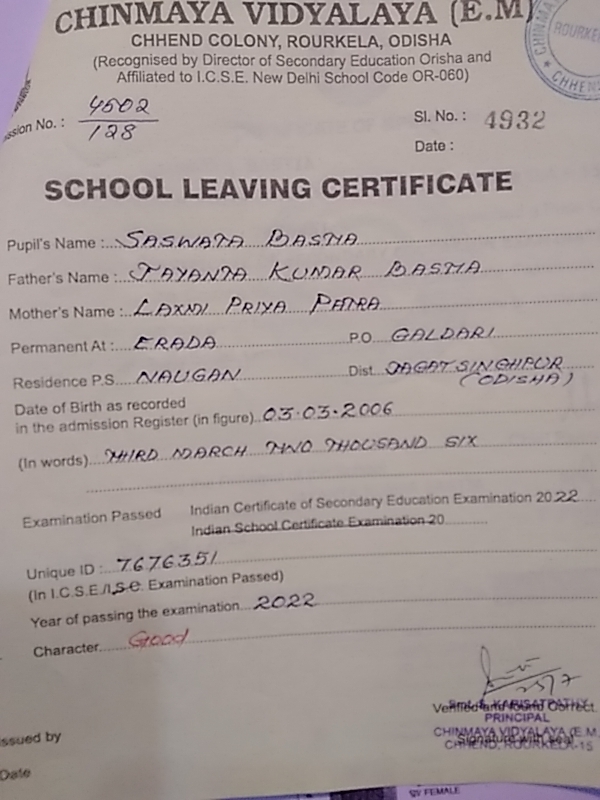 CHINMAYA VIDYALAYA (E.M)
CHHEND COLONY, ROURKELA, ODISHA
(Recognised by Director of Secondary Education Orisha and
Affiliated to I.C.S.E. New Delhi School Code OR-060)
ssion No. : 4502/128
Sl. No. : 4932
Date :
SCHOOL LEAVING CERTIFICATE
Pupil's Name : SASWATA BASTIA
Father's Name : JAYANTA KUMAR BASTIA
Mother's Name : LAXMI PRIYA PATRA
Permanent At : ERADA P.O. GALDARI
Residence P.S. NAUGAN Dist. JAGATSINGHPUR
(ODISHA)
Date of Birth as recorded
in the admission Register (in figure) 03.03.2006
(In words) THIRD MARCH TWO THOUSAND SIX
Examination Passed Indian Certificate of Secondary Education Examination 2022
Indian School Certificate Examination 20
Unique ID : 7676351
(In I.C.S.E./I.S.C. Examination Passed)
Year of passing the examination 2022
Character Good
Verified and found Correct.
PRINCIPAL
CHINMAYA VIDYALAYA (E.M.
Signature with seal
CHHEND, ROURKELA-15
ssued by
Date
FEMALE